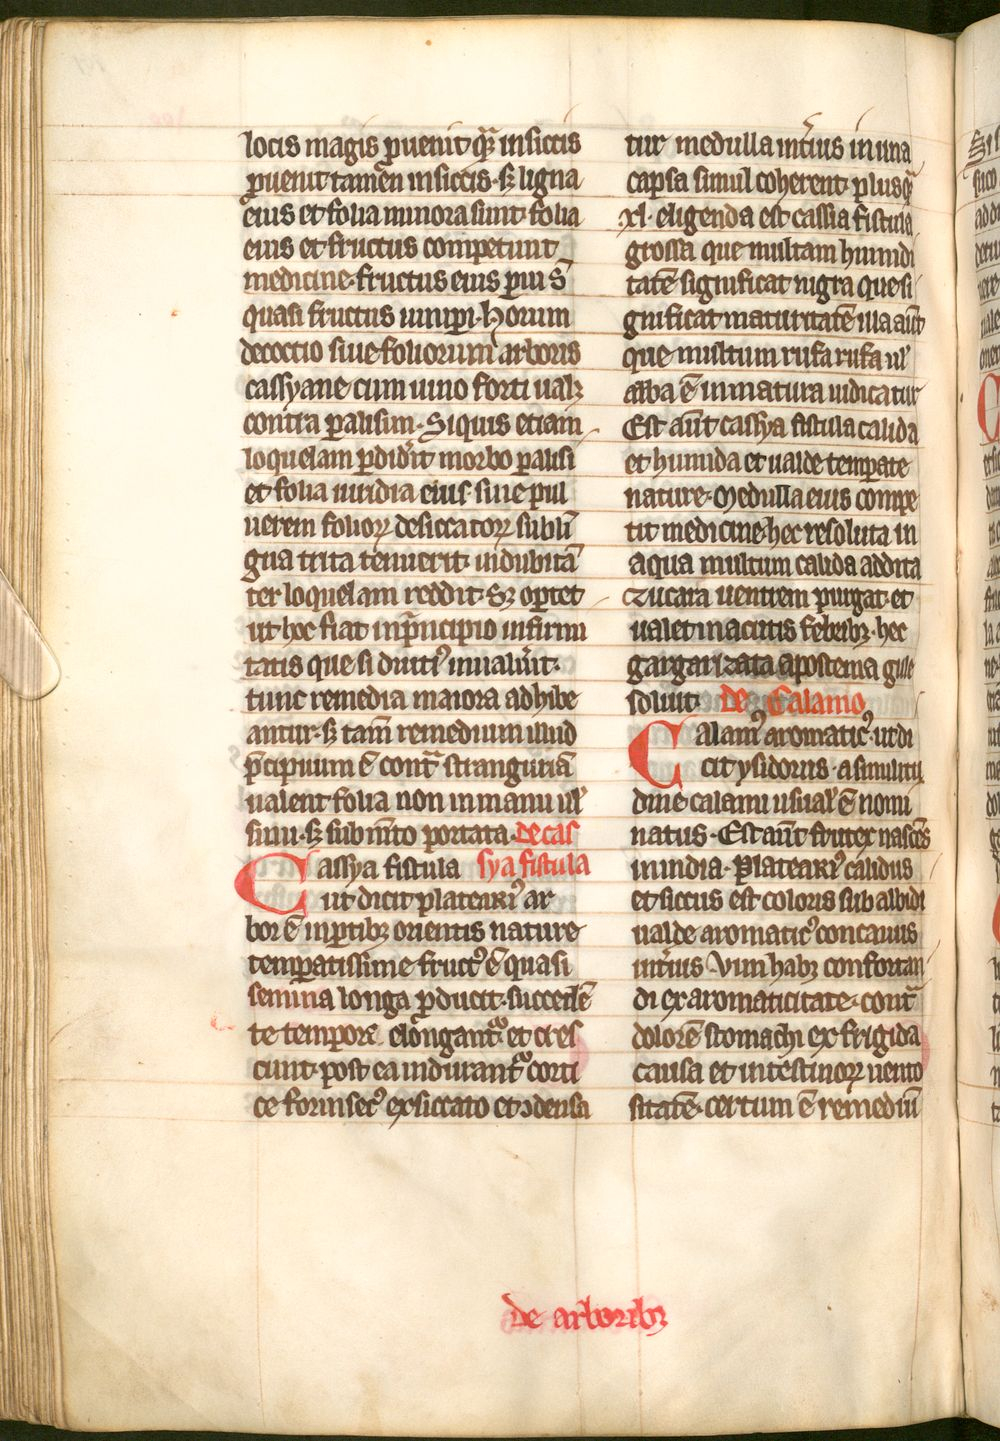 locis magis ꝓuenit qᷓꝫ in siccis
ꝓuenit tamen in siccis· sꝫ ligna
eius et folia minora sunt· folia
eius et fructus competunt
medicine· fructus eius ꝑui sᷝ
quasi fructus iunipi· Horum
decoctio siue foliorum arboris
cassyane cum uino forti ualꝫ
contra ꝑalisim· Siquis etiam
loquelam ꝑdiderit morbo ꝑalisi
et folia uiridia eius siue pul
uerem folioꝝ desiccatoꝝ sub lī
gua trita tenuerit· indubitā
ter loquelam reddit· Sꝫ oꝑtet
ut hec fiat in pͥncipio infirmi
tatis que si diutiꝰ inualuit·
tunc remedia maiora adhibe
antur· sꝫ tam̄ remedium illud
p̄cipuum ē contͣ stranguriā
ualent folia non in manu uł
sinu· sꝫ sub mento portata· de cas
Cassya fistula sya fistula
ut dicit plateariꝰ ar
bor ē in ꝑtibꝫ orientis nature
temꝑatissime fructꝰ ē quasi
semina longa ꝓducit· succedē
te tempore elongantᷣ et cres
cunt· post ea indurantᷣ corti
ce forinsecꝰ exsiccato et ↄdensa
tur medulla inteꝛius in una
capsa simul coherent plusqᷓ
xl· eligenda est cassia fistula
grossa que multam humidi
tatē significat nigra que si
gnificat maturitatē illa aut̄
que multum rufa rufa uł
alba ē inmatura iudicatur
Est aut̄ cassya fistula calida
et humida et ualde temperate
nature· Medulla eius compe
tit medicine· hec resoluta in
aqua multum calida addita
czucara uentrem purgat· et
ualet in acutis febribꝫ· hec
gargarizata apostema gule
soluit· de Calamo
Calamꝰ aromaticꝰ· ut di
cit ysidorus· a similitu
dine calami usual' ē nomi
natus· Est aut̄ frutex nascēs
in india· Plateariꝰ calidus
et siccus est coloris sub albidi
ualde aromaticꝰ concauus
inteꝛius Vim habꝫ confortan
di ex aromaticitate· contͣ
dolorē stomachi ex frigida
causa et intestinoꝝ uento
sitatē· certum ē remediū
de arboribꝫ